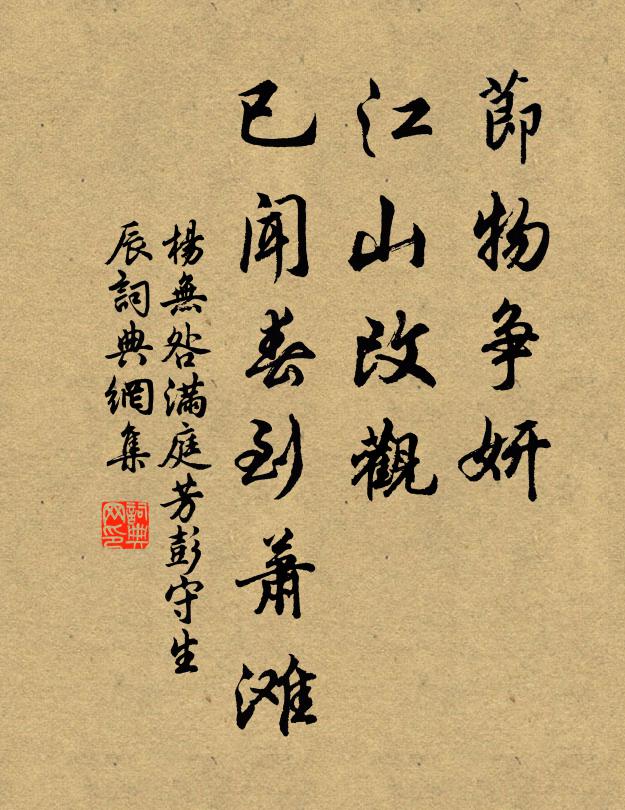 節物争妍
江山改觀
已聞春到蕭滩
楊無咎滿庭芳彭守生
辰詞典網集
詞典网印